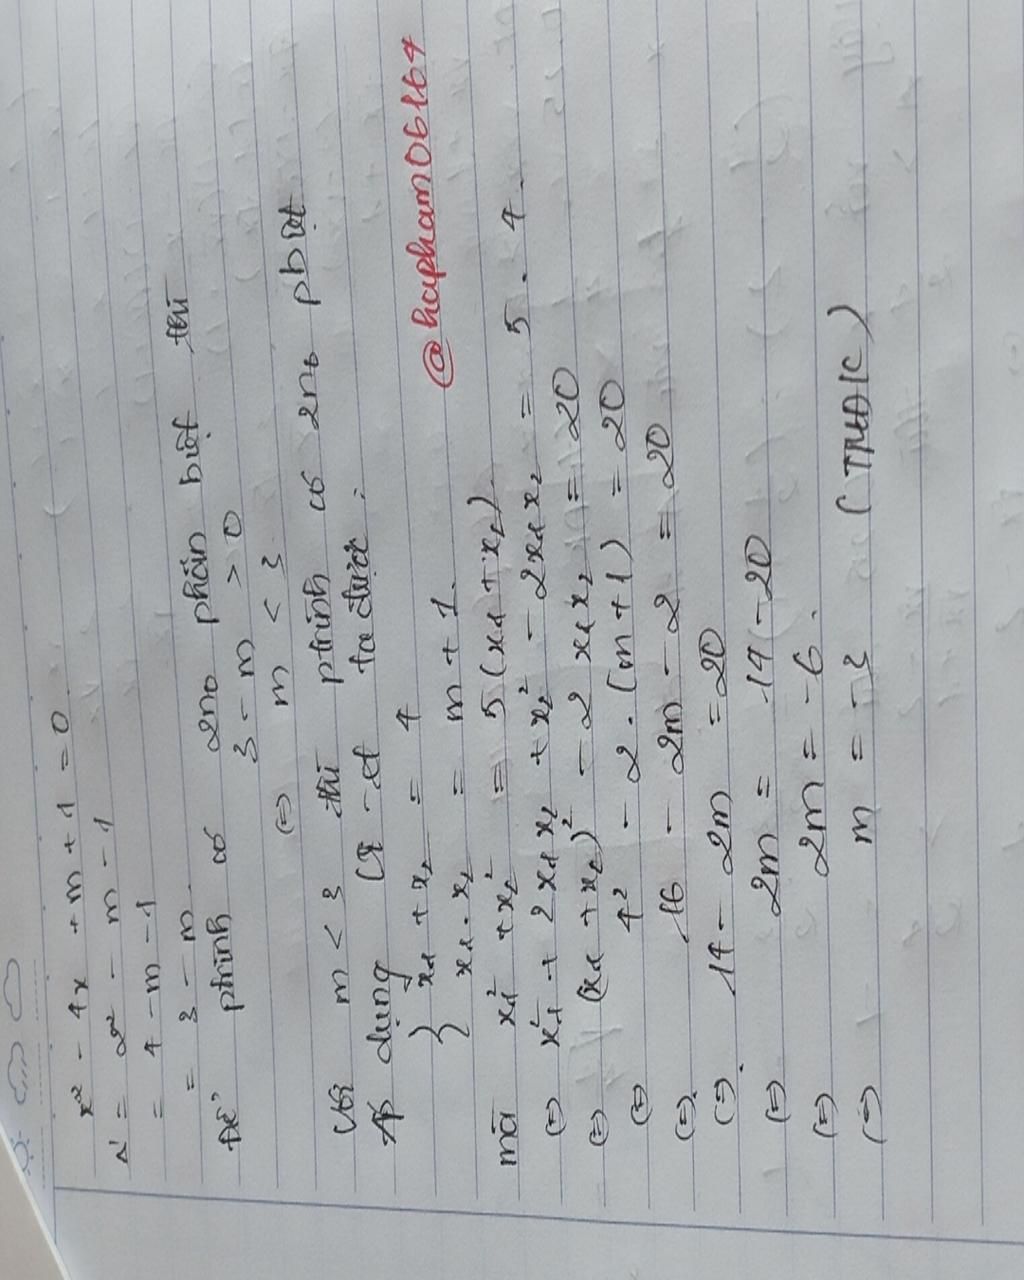 x² - 4x + m + 1 = 0
Δ' = 2² - m - 1
= 4 - m - 1
= 3 - m
Để ptrình có 2no phân biệt thì
3 - m > 0
(=) m < 3
Với m < 3 thì ptrình có 2no pbiệt
Áp dụng Vi-et ta được:
{ x1 + x2 = 4
x1 . x2 = m + 1
@hapham06164
mà x1² + x2² = 5(x1 + x2)
(=) x1² + 2x1x2 + x2² - 2x1x2 = 5 . 4
(=) (x1 + x2)² - 2 x1x2 = 20
(=) 4² - 2 . (m + 1) = 20
(=) 16 - 2m - 2 = 20
(=) 14 - 2m = 20
(=) 2m = 14 - 20
(=) 2m = -6
(=) m = -3 (TMĐK)